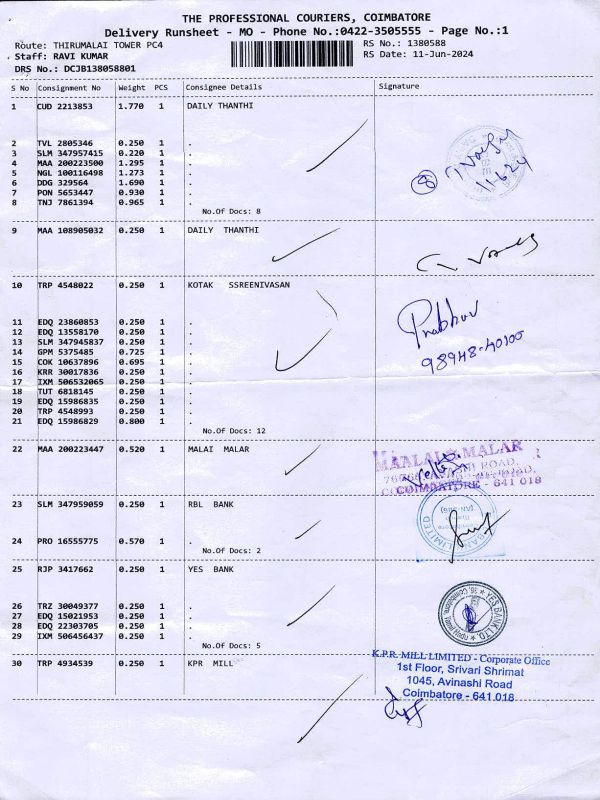 THE PROFESSIONAL COURIERS, COIMBATORE
Delivery Runsheet - MO - Phone No.:0422-3505555 - Page No.:1
Route: THIRUMALAI TOWER PC4 RS No.: 1380588
Staff: RAVI KUMAR RS Date: 11-Jun-2024
DRS No.: DCJB138058801
S No Consignment No Weight PCS Consignee Details Signature
1 CUD 2213853 1.770 1 DAILY THANTHI
2 TVL 2805346 0.250 1 .
3 SLM 347957415 0.220 1 .
4 MAA 200223500 1.295 1 .
5 NGL 100116498 1.273 1 .
6 DDG 329564 1.690 1 .
7 PON 5653447 0.930 1 .
8 TNJ 7861394 0.965 1 .
No.Of Docs: 8
8
11.6.24
9 MAA 108905032 0.250 1 DAILY THANTHI
10 TRP 4548022 0.250 1 KOTAK SSREENIVASAN
11 EDQ 23860853 0.250 1 .
12 EDQ 13558170 0.250 1 .
13 SLM 347945837 0.250 1 .
14 GPM 5375485 0.725 1 .
15 COK 10637896 0.695 1 .
16 KRR 30017836 0.250 1 .
17 IXM 506532065 0.250 1 .
18 TUT 6818145 0.250 1 .
19 EDQ 15986835 0.250 1 .
20 TRP 4548993 0.250 1 .
21 EDQ 15986829 0.800 1 .
No.Of Docs: 12
Prabhu
98948-40100
22 MAA 200223447 0.520 1 MALAI MALAR
MAALAI MALAR
COIMBATORE - 641 018
23 SLM 347959059 0.250 1 RBL BANK
24 PRO 16555775 0.570 1 .
No.Of Docs: 2
25 RJP 3417662 0.250 1 YES BANK
26 TRZ 30049377 0.250 1 .
27 EDQ 15021953 0.250 1 .
28 EDQ 22303705 0.250 1 .
29 IXM 506456437 0.250 1 .
No.Of Docs: 5
YES BANK LTD.
30 TRP 4934539 0.250 1 KPR MILL
K.P.R. MILL LIMITED - Corporate Office
1st Floor, Srivari Shrimat
1045, Avinashi Road
Coimbatore - 641 018